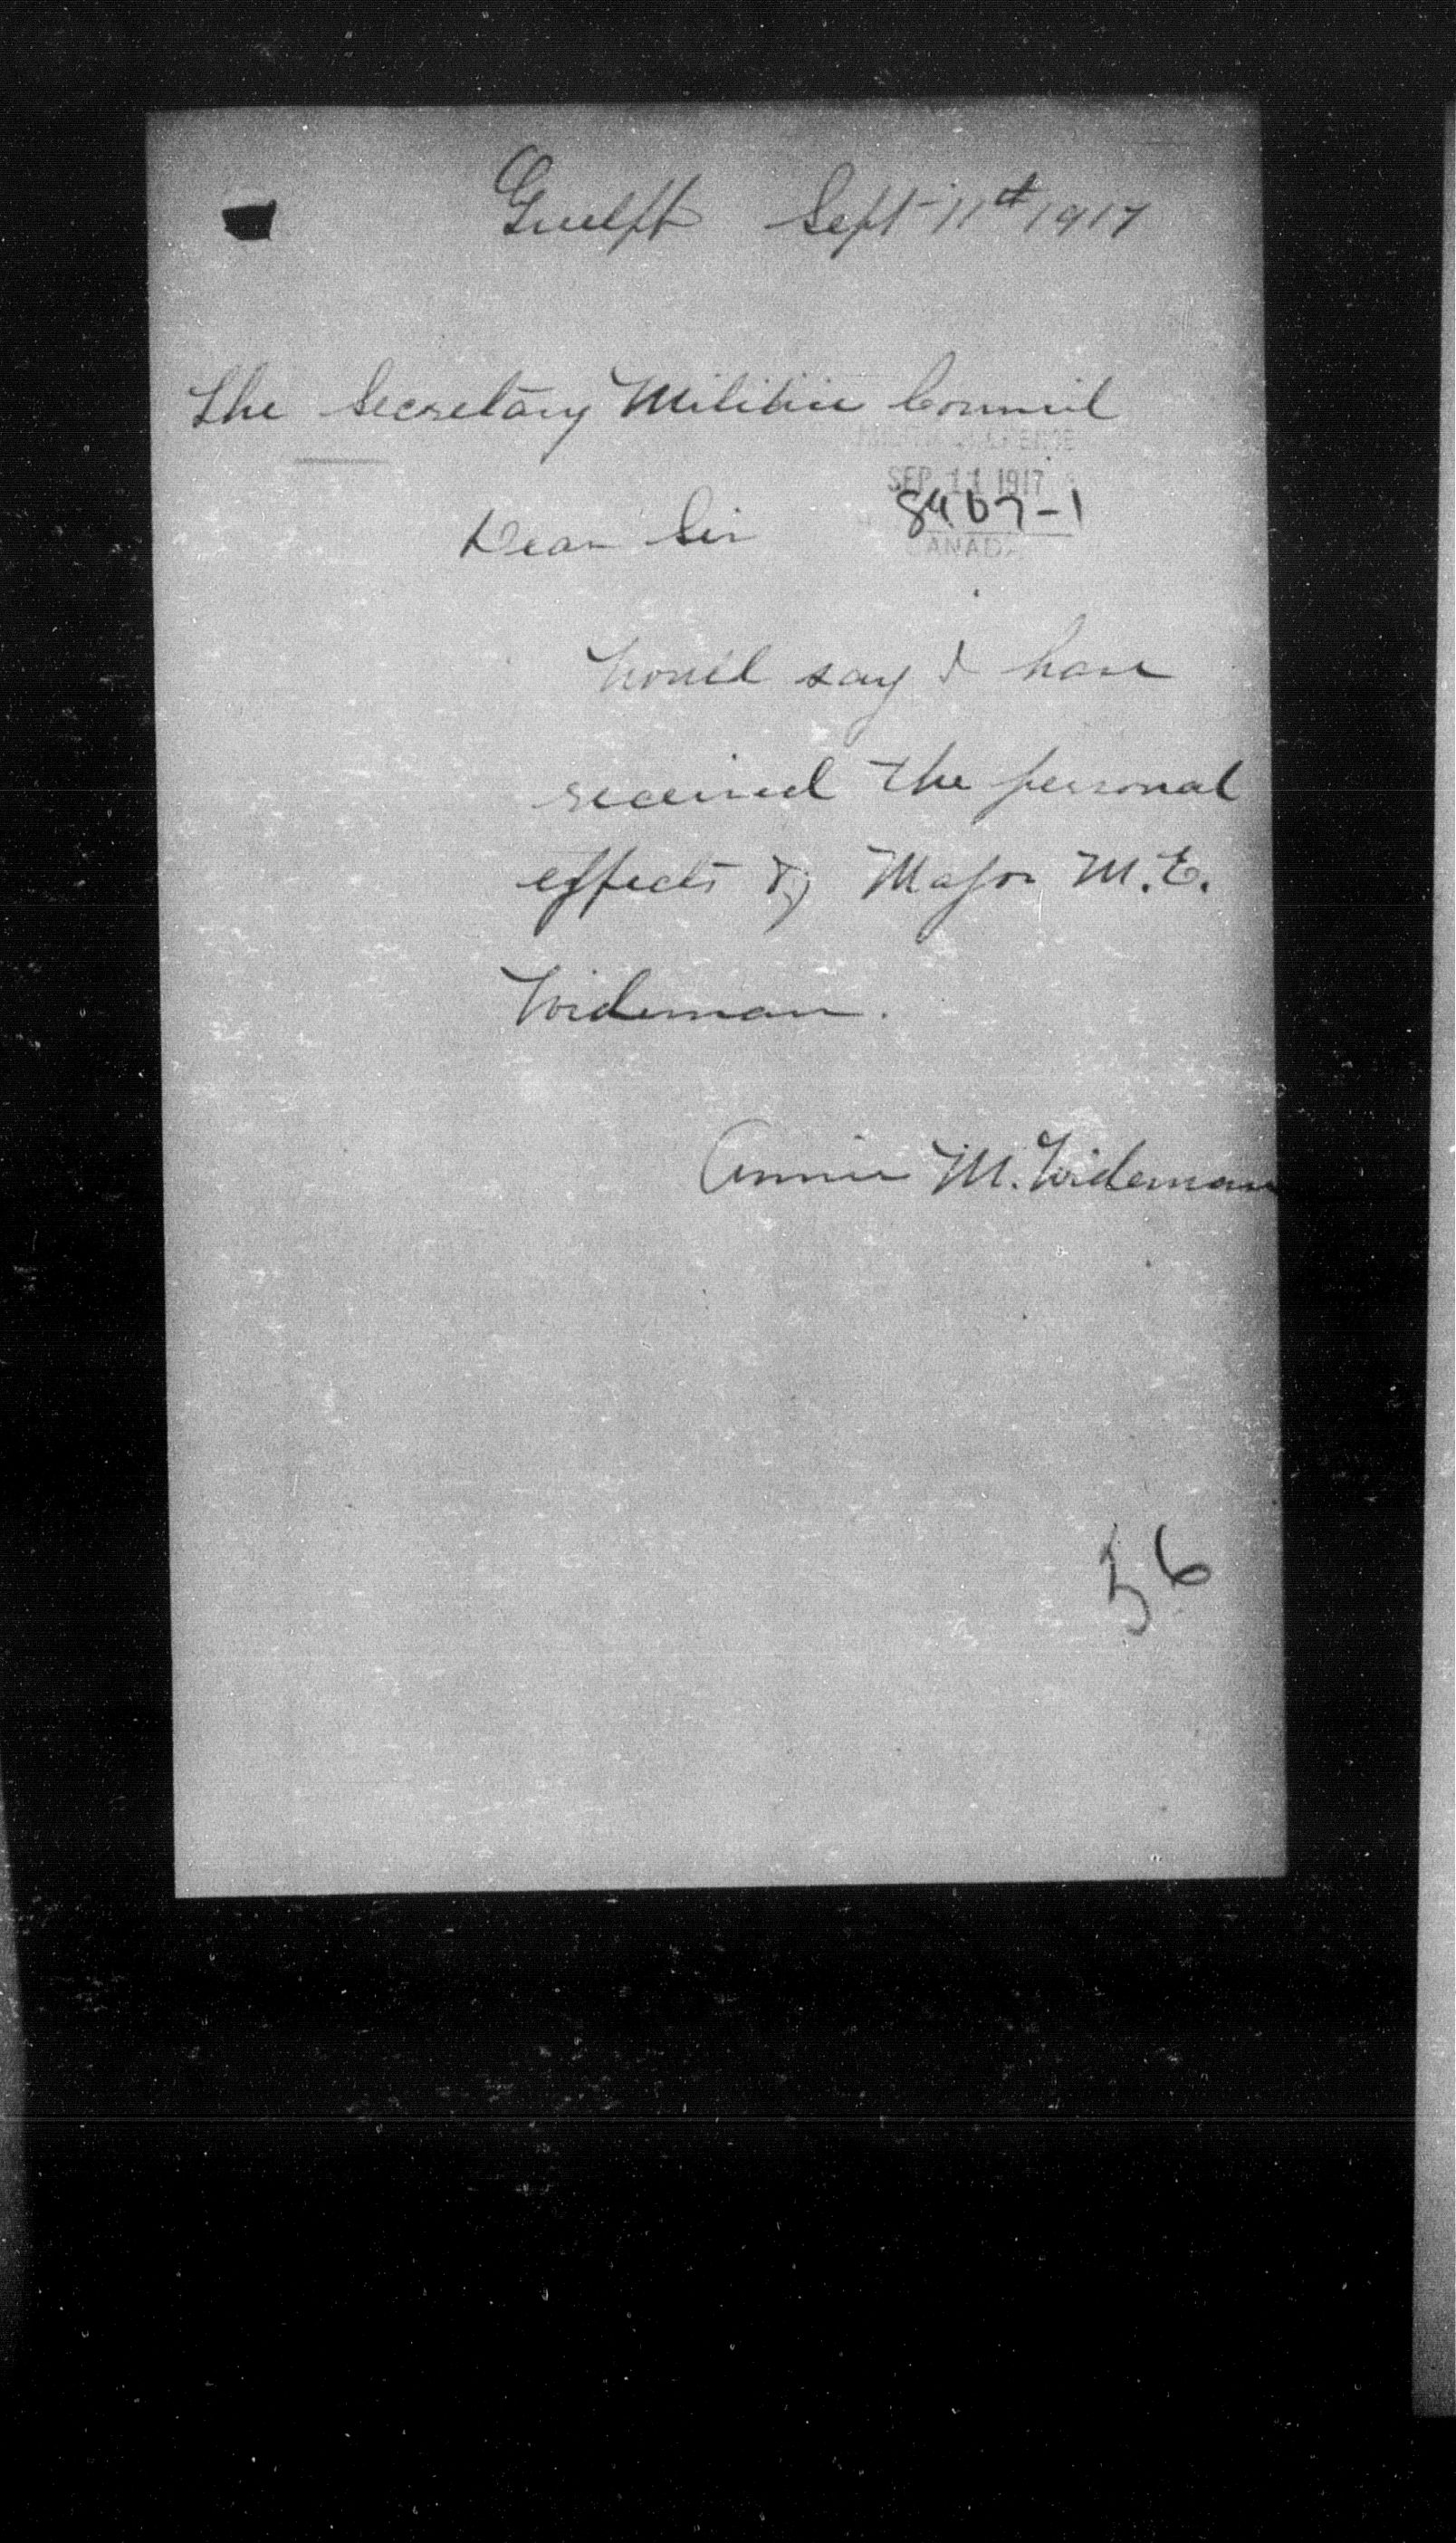 Guelph Sept-11th 1917
The Secretary Militia Council
SEP 11 1917
8967-1
CANADA
Dear Sir
Would say I have
received the personal
effects of Major M.E.
Wideman.
Annie M. Wideman
56